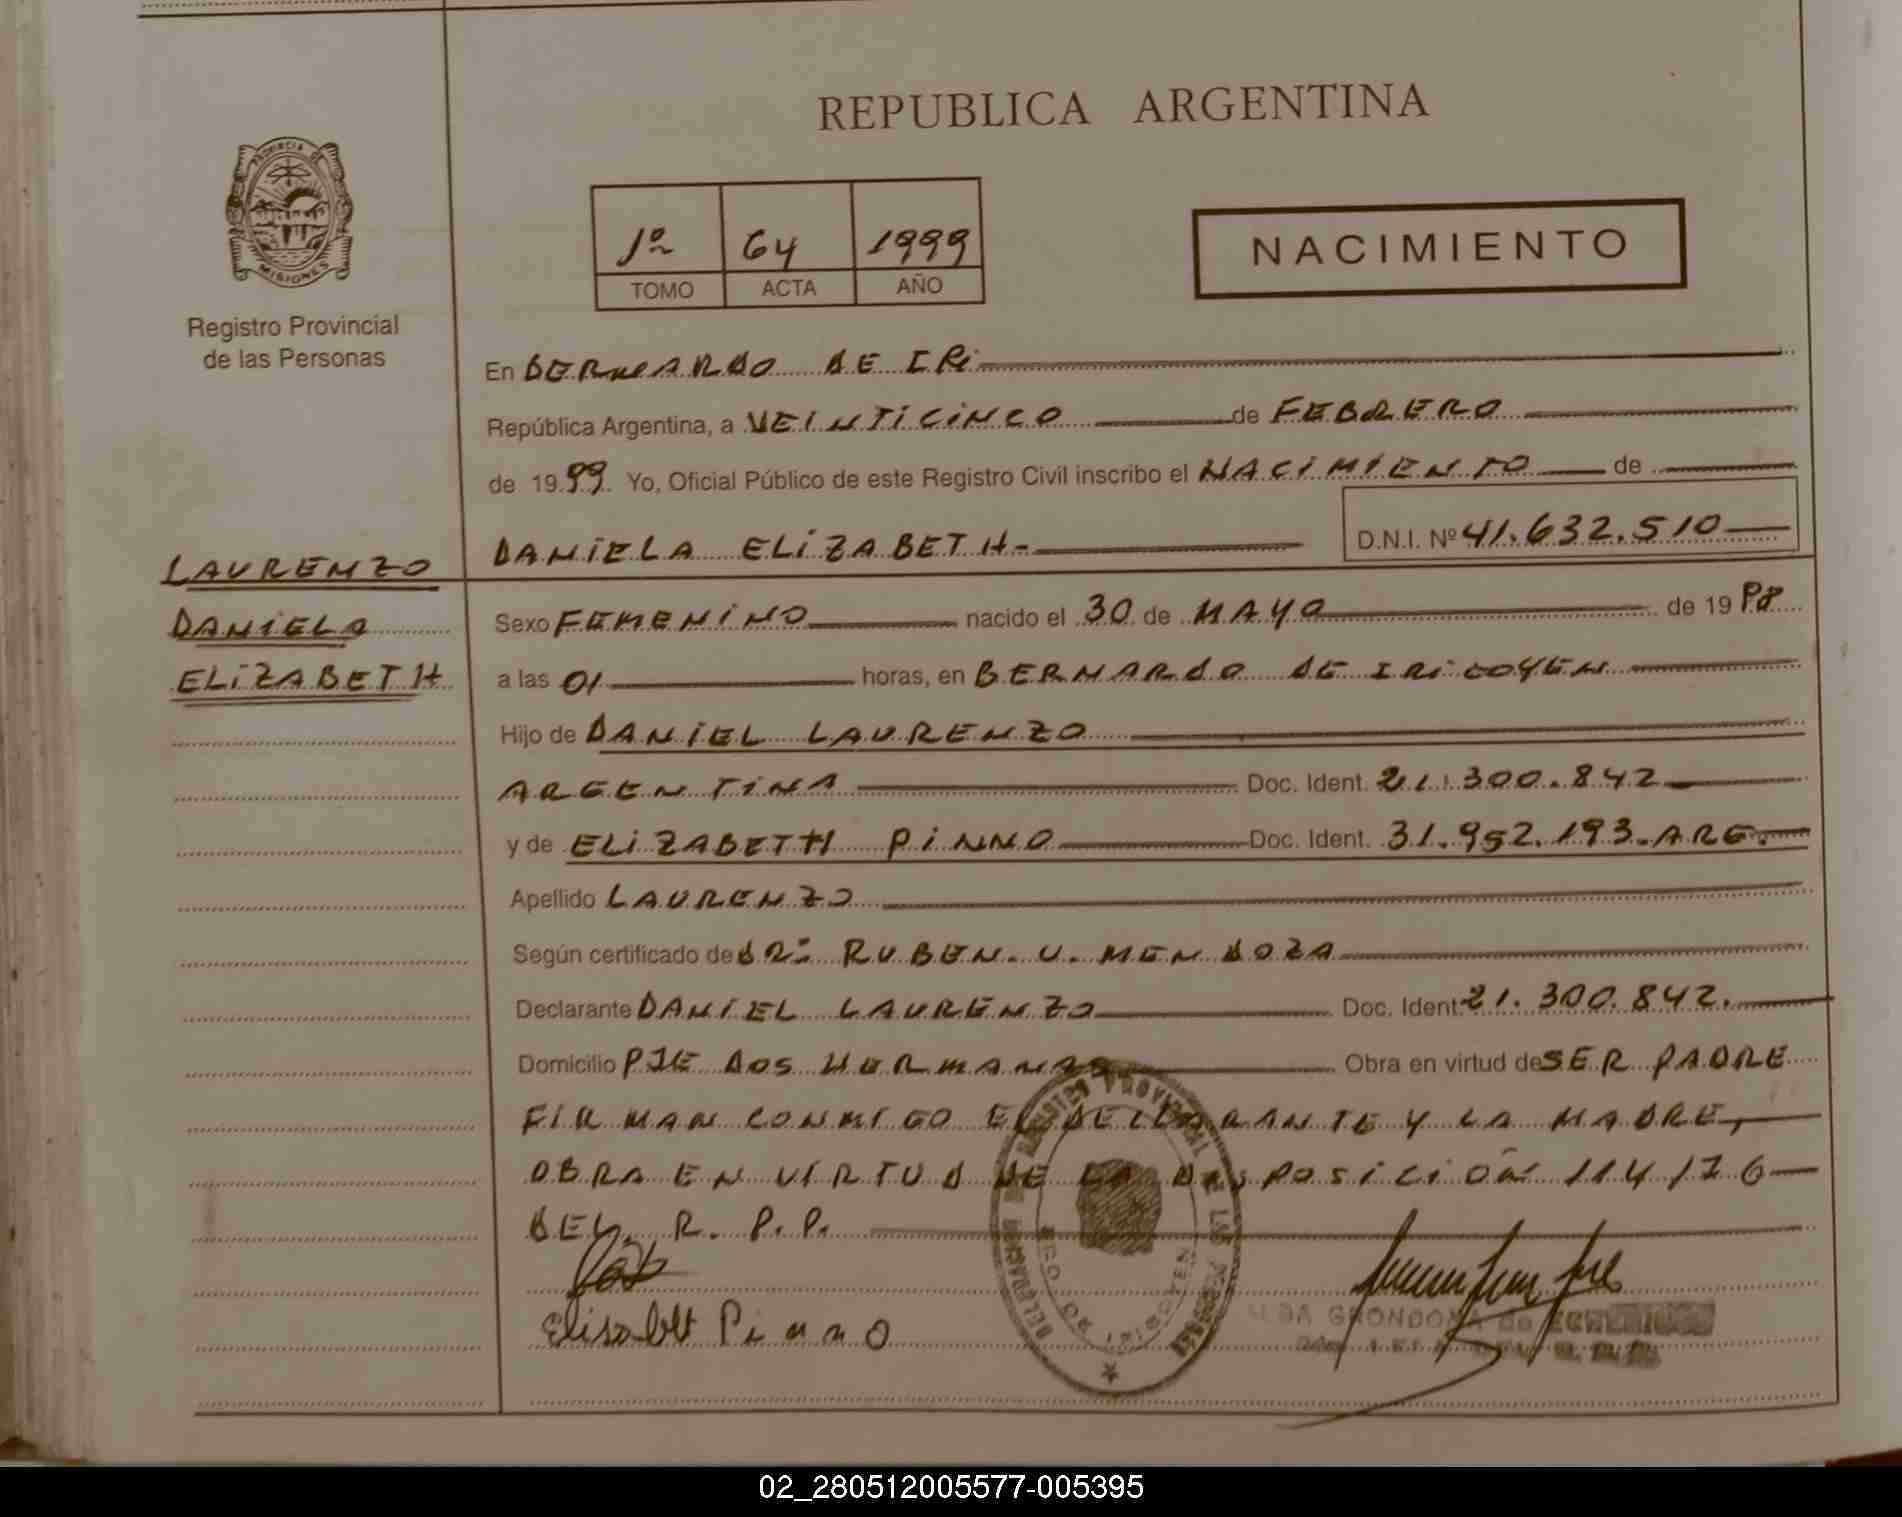 REPUBLICA ARGENTINA
PROVINCIA DE
MISIONES
Registro Provincial
de las Personas
1º 64 1999
TOMO ACTA AÑO
NACIMIENTO
En BERNARDO DE IRi
República Argentina, a VEINTICINCO de FEBRERO
de 1999. Yo, Oficial Público de este Registro Civil inscribo el NACIMIENTO de
DANIELA ELIZABETH- D.N.I. Nº 41.632.510
LAURENZO
DANIELA
ELIZABETH
Sexo FEMENINO nacido el 30 de MAYO de 19 98
a las 01 horas, en BERNARDO DE IRIGOYEN
Hijo de DANIEL LAURENZO
ARGENTINA Doc. Ident. 21.300.842
y de ELIZABETH PINNO Doc. Ident. 31.952.193.ARG.
Apellido LAURENZO
Según certificado de DR: RUBEN. U. MENDOZA
Declarante DANIEL LAURENZO Doc. Ident. 21.300.842.
Domicilio PJE DOS HERMANAS Obra en virtud de SER PADRE
FIRMAN CONMIGO EL DECLARANTE Y LA MADRE,
OBRA EN VIRTUD DE LA DISPOSICIÓN 114/76
DEL R. P. P.
Elisabtt Pinno
REGISTRO PROVINCIAL DE LAS PERSONAS
DELEGACION
BDO. DE IRIGOYEN
GRONDONA de
02_280512005577-005395